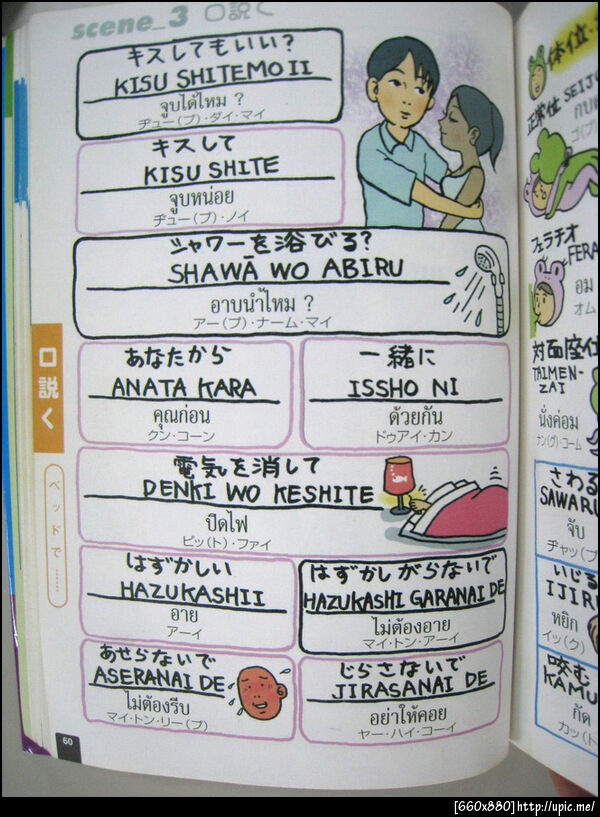 scene_3 口説く
キスしてもいい?
KISU SHITEMO II
จูบได้ไหม ?
ヂュー(プ)・ダイ・マイ
キスして
KISU SHITE
จูบหน่อย
ヂュー(プ)・ノイ
シャワーを浴びる?
SHAWĀ WO ABIRU
อาบน้ำไหม ?
アー(プ)・ナーム・マイ
あなたから
ANATA KARA
คุณก่อน
クン・コーン
一緒に
ISSHO NI
ด้วยกัน
ドゥアイ・カン
電気を消して
DENKI WO KESHITE
ปิดไฟ
ピッ(ト)・ファイ
はずかしい
HAZUKASHII
อาย
アーイ
はずかしがらないで
HAZUKASHI GARANAI DE
ไม่ต้องอาย
マイ・トン・アーイ
あせらないで
ASERANAI DE
ไม่ต้องรีบ
マイ・トン・リー(プ)
じらさないで
JIRASANAI DE
อย่าให้คอย
ヤー・ハイ・コーイ
口説く
ベッドで……
60
体位・
正常位 SEIJO
フェラチオ
FERA
อม
オム
対面座位
TAIMEN-
ZAI
นั่งค่อม
ナン(グ)・コーム
さわる
SAWARU
จับ
ヂャッ(プ)
いじる
IJIRU
หยิก
イッ(ク)
咬む
KAMU
กัด
カッ(ト)
[660x880]http://upic.me/